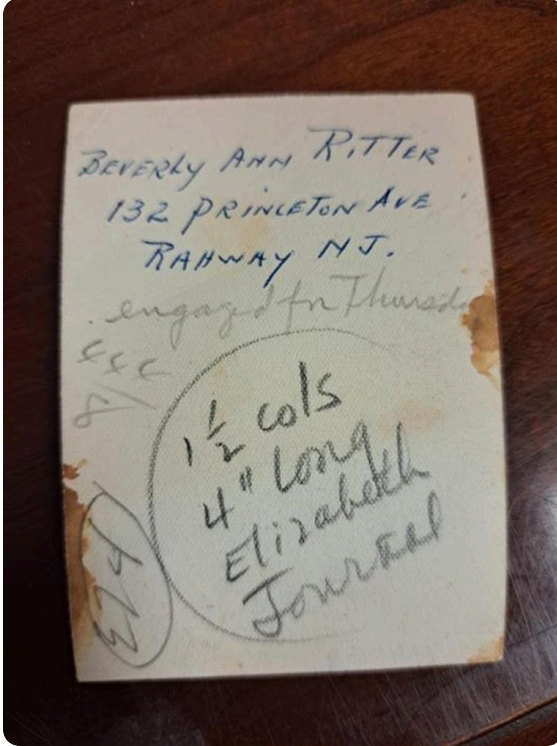 BEVERLY ANN RITTER
132 PRINCETON AVE
RAHWAY NJ.
engaged for Thursda
1 1/2 cols
4" long
Elizabeth
Journal